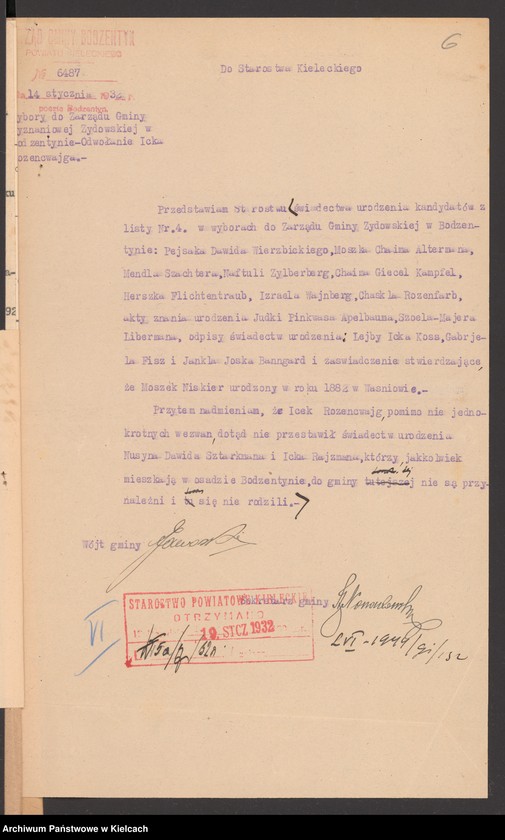 6
URZĄD GMINY BODZENTYN
POWIATU KIELECKIEGO
№ 6487
14 stycznia 1932 r.
poczta Bodzentyn.
Do Starostwa Kieleckiego
ybory do Zarządu Gminy
yznaniowej Żydowskiej w
odzentynie-Odwołanie Icka
ozencwajga.-
Przedstawiam Starostwu świadectwa urodzenia kandydatów z
listy Nr.4. w wyborach do Zarządu Gminy Żydowskiej w Bodzen-
tynie: Pejsaka Dawida Wierzbickiego,Moszka Chaima Altermana,
Mendla Szachtera,Naftuli Zylberberg,Chaima Giecel Kampfel,
Herszka Flichtentraub, Izraela Wajnberg,Chaskla Rozenfarb,
akty znania urodzenia Judki Pinkwasa Apelbauna,Szoela-Majera
Libermana, odpisy świadectw urodzenia: Lejby Icka Kosz,Gabrje-
la Fisz i Jankla Joska Banngard i zaświadczenie stwierdzające,
że Moszek Niskier urodzony w roku 1882 w Waśniowie.-
Przytem nadmieniam, że Icek Rozencwajg pomimo nie jedno-
krotnych wezwań,dotąd nie przestawił świadectw urodzenia
Nusyna Dawida Sztarkmana i Icka Rajzmana,którzy,jakkolwiek
mieszkają w osadzie Bodzentynie,do gminy tutejszej nie są przy-
należni i tu się nie rodzili.-
Wójt gminy
Sekretarz gminy
STAROSTWO POWIATOWE KIELECKIE
OTRZYMANO
19. STYCZ 1932
VI
Archiwum Państwowe w Kielcach